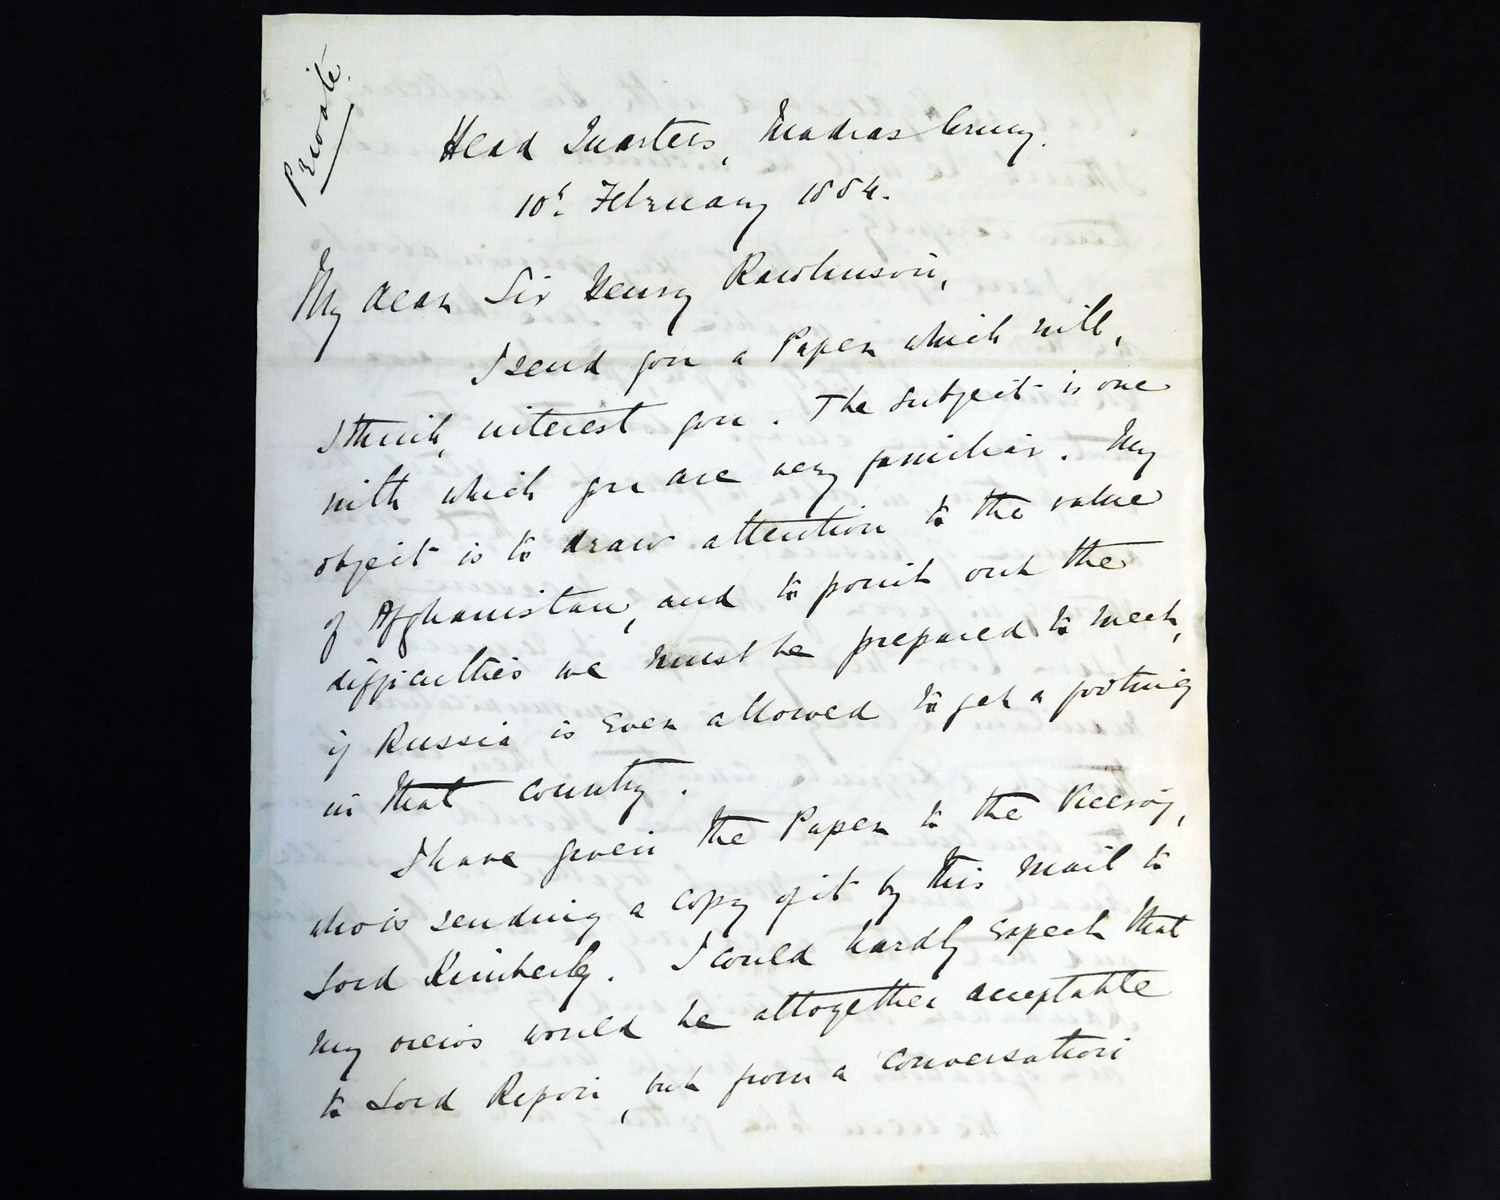 Private.
Head Quarters, Madras Army.
10th February 1884.
My dear Sir Henry Rawlinson,
I send you a Paper which will,
I think, interest you. The subject is one
with which you are very familiar. My
object is to draw attention to the value
of Afghanistan, and to point out the
difficulties we must be prepared to meet,
if Russia is ever allowed to get a footing
in that country.
I have given the Paper to the Viceroy,
who is sending a copy of it by this mail to
Lord Kimberley. I could hardly expect that
my views would be altogether acceptable
to Lord Ripon, but from a conversation